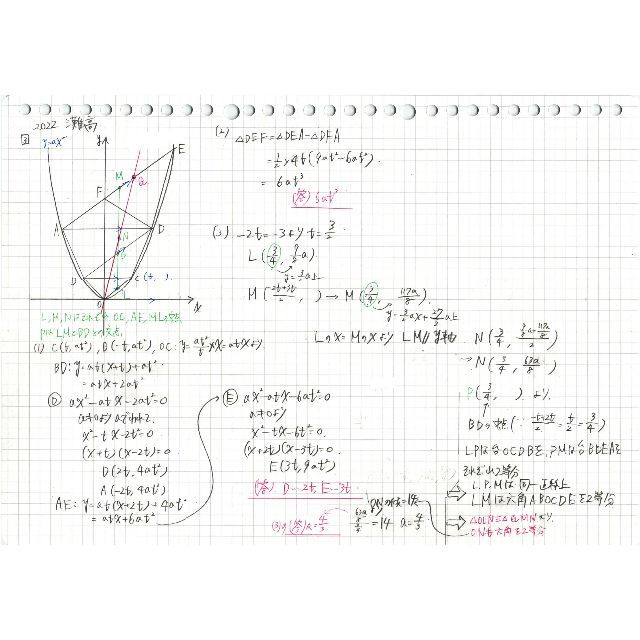 2022 灘高
3 y=ax²
L, M, NはそれぞれOC, AE, MLの中点
PはLMとBDとの交点
(1) C(t, at²), B(-t, at²), OC: y=at²/t×x=atxより
BD: y=at(x+t)+at²
=atx+2at²
D ax²-atx-2at²=0
a≠0よりaでわれて
x²-tx-2t²=0
(x+t)(x-2t)=0
D(2t, 4at²)
A(-2t, 4at²)
AE: y=at(x+2t)+4at²
=atx+6at²
E ax²-atx-6at²=0
a≠0より
x²-tx-6t²=0
(x+2t)(x-3t)=0
E(3t, 9at²)
(答) D…2t, E…3t
(2) △DEF=△DEA-△DFA
=1/2×4t(9at²-6at²)
=6at³
(答) 6at³
(3) -2t=-3より t=3/2
L(3/4, 9/8a)
y=3/2axより
M( , ) → M(3/4, 117a/8)
y=3/2ax+27/2aより
Lのx=Mのxより LM//y軸
N(3/4, )
→N(3/4, 63a/8)
P(3/4, ) より
BDの中点(∵(-t+2t)/2=t/2=3/4)
LPは台OCDBを, PMは台BDEAを
それぞれ2等分
⇒ L, P, Mは同一直線上
LMは六角ABOCDEを2等分
⇒ △OLN=△QMNより
ONも六角を2等分
ONの傾き=14
=14 a=4/3
(3)の(答)a=4/3